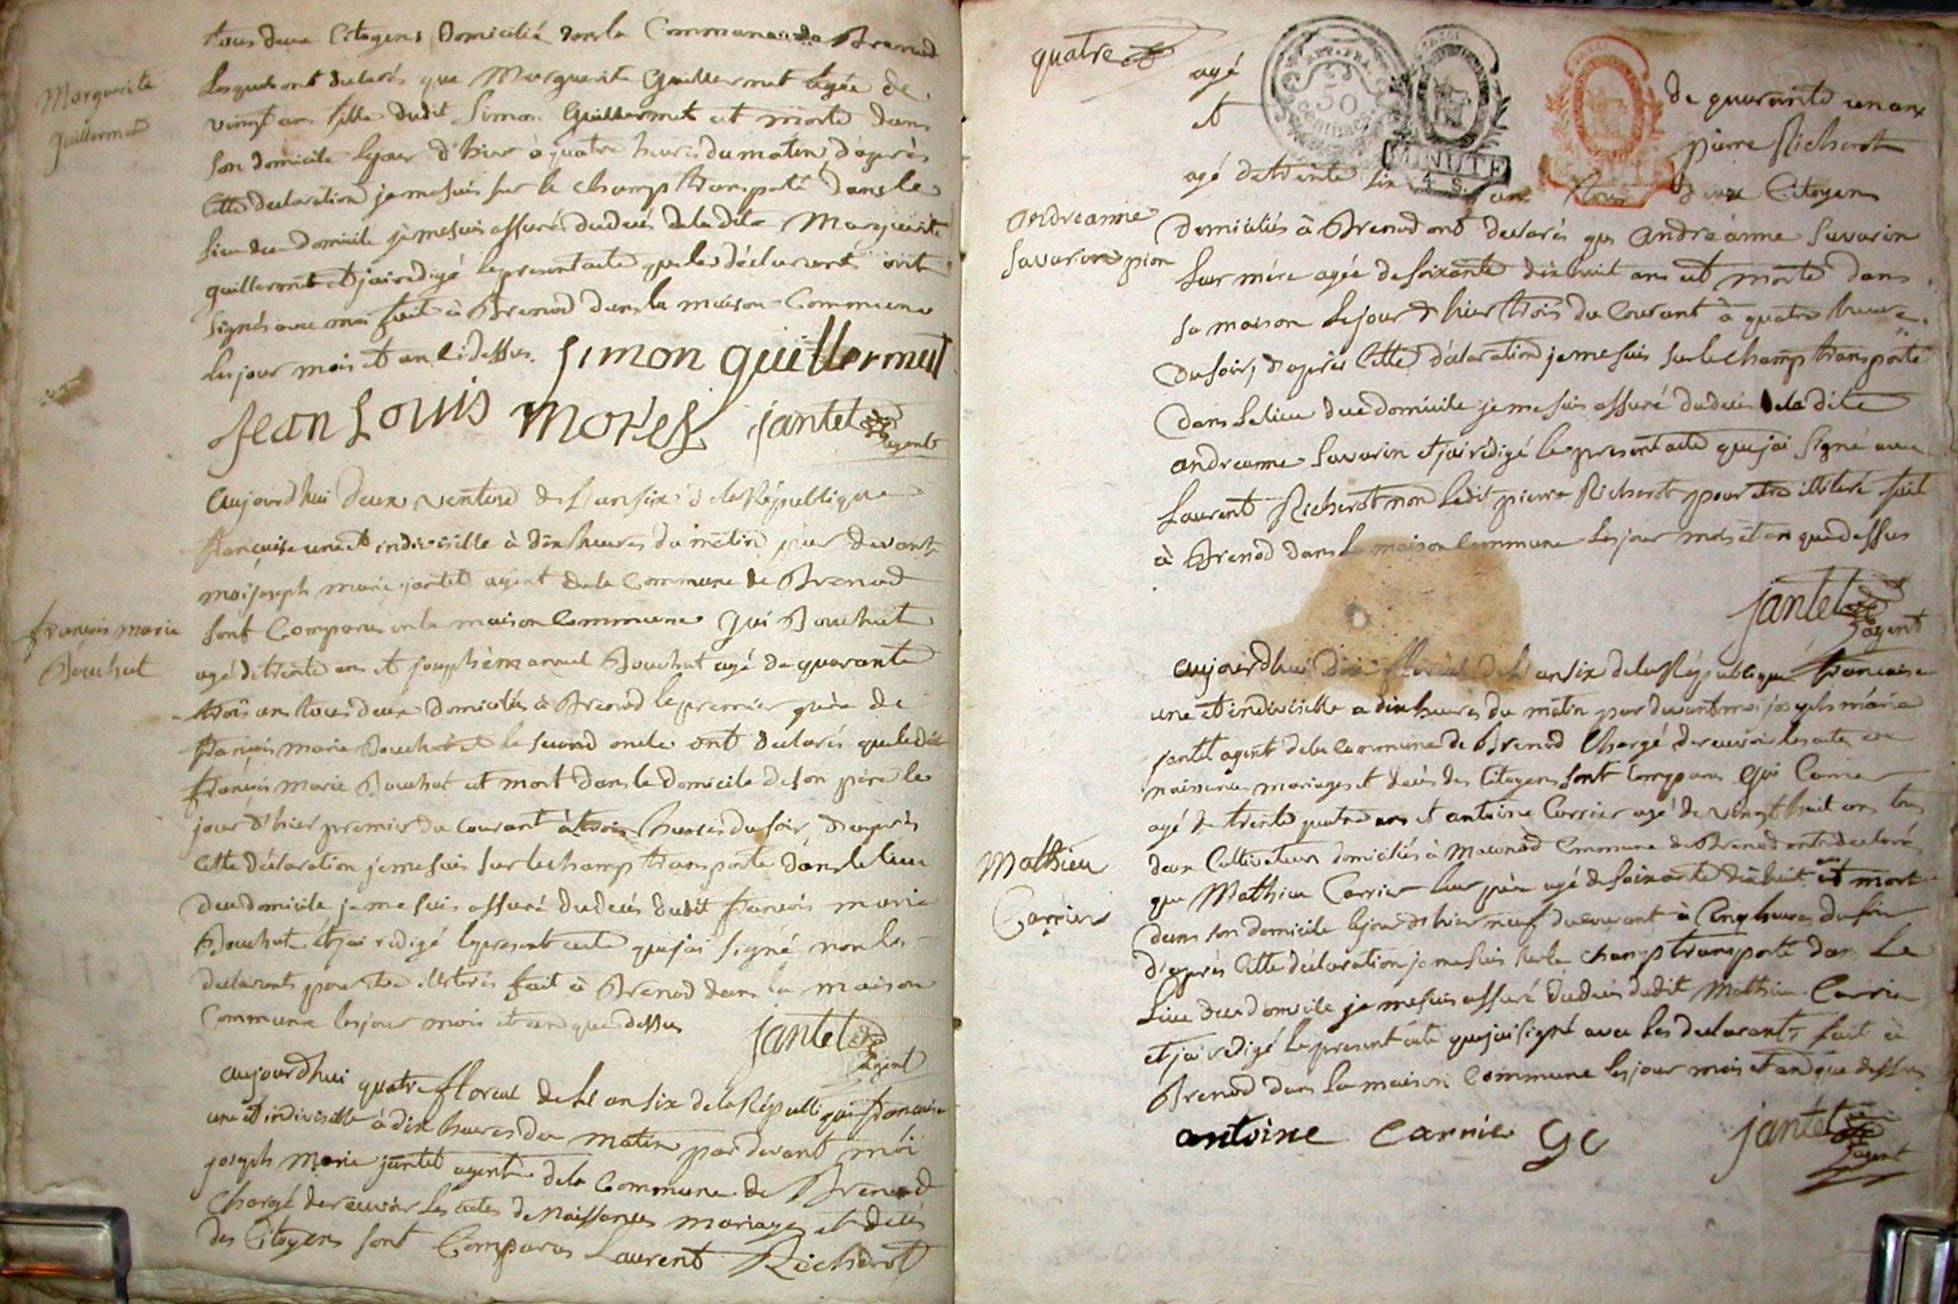 tous deux Citoyens Domicilié dans la Commune de Brenod
Lesquels ont declarés que Marguerite Guillermet agée de
vingt ans fille dudit Simon Guillermet est morte dans
son domicile le jour d'hier à quatre heures du matin d'après
cette declaration je me suis sur le champ transporté dans le
lieu du Domicile je me suis assuré du decés de la dite Marguerite
guillermet et j'ai redigé le present acte que les déclarants ont
signés avec moi fait à Brenod dans la maison Commune
les jour mois et an ci dessus. Simon guillermet
Jean Louis Morel jantet
agent
Marguerite
guillermet
aujourdhui deux ventose de l'an six de la République
française une et indivisible à dix heures du matin par devant
moi joseph marie jantet agent de la Commune de Brenod
sont Comparus en la maison Commune Gui Bouchut
agé de trente ans et joseph emanuel Bouchut agé de quarante
trois ans tous deux domiciliés à Brenod le premier père de
françois marie Bouchut et le second oncle ont declarés que ledit
françois marie Bouchut est mort dans le domicile de son père le
jour d'hier premier du courant à trois heures du soir d'après
cette déclaration je me suis sur le champ transporté dans le lieu
du domicile je me suis assuré du decés dudit françois marie
Bouchut et j'ai redigé le present acte que j'ai signé non les
declarants pour être illiterés fait à Brenod dans la maison
Commune les jour mois et an que dessus jantet
agent
françois marie
Bouchut
aujourdhui quatre floreal de l'an six de la République française
une et indivisible à dix heures du matin par devant moi
joseph marie jantet agent de la Commune de Brenod
Chargé de recevoir les actes de Naissances mariages et decés
des Citoyens sont Comparus Laurent Richerot
quatre
agé de quarante un ans
et pierre Richerot
agé de trente six ans tous deux Citoyens
REP. FRA.
50
Centimes
MINUTE
4 S.
domiciliés à Brenod ont declarés que andréanne Savarin
leur mère agée de soixante dix huit ans est morte dans
sa maison le jour d'hier trois du Courant à quatre heures
du soir, d'après cette déclaration je me suis sur le champ transporté
dans le lieu du domicile je me suis assuré du decés de la dite
andréanne Savarin et j'ai redigé le present acte que j'ai signé avec
Laurent Richerot non ledit pierre Richerot pour être illiteré fait
à Brenod dans la maison Commune les jour mois et an que dessus
jantet
agent
andréanne
Savarin pion
aujourdhui dix floreal de l'an six de la République française
une et indivisible a dix heures du matin par devant moi joseph marie
jantet agent de la commune de Brenod Chargé de recevoir les actes de
naissances mariages et decés des Citoyens sont comparus Gui Carrier
agé de trente quatre ans et antoine Carrier agé de vingt huit ans tous
deux Cultivateurs domiciliés à Macconod Commune de Brenod ont declarés
que Mathieu Carrier leur père agé de soixante dix huit ans est mort
dans son domicile le jour d'hier neuf du courant à Cinq heures du soir
d'après cette déclaration je me suis sur le champ transporté dans le
lieu du domicile je me suis assuré du decés dudit Mathieu Carrier
et j'ai redigé le present acte que j'ai signé avec les declarants, fait à
Brenod dans la maison Commune les jour mois et an que dessus
antoine Carrier GC jantet
agent
Mathieu
Carrier